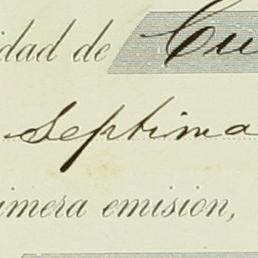 idad de Cu
septima
imera emisión,